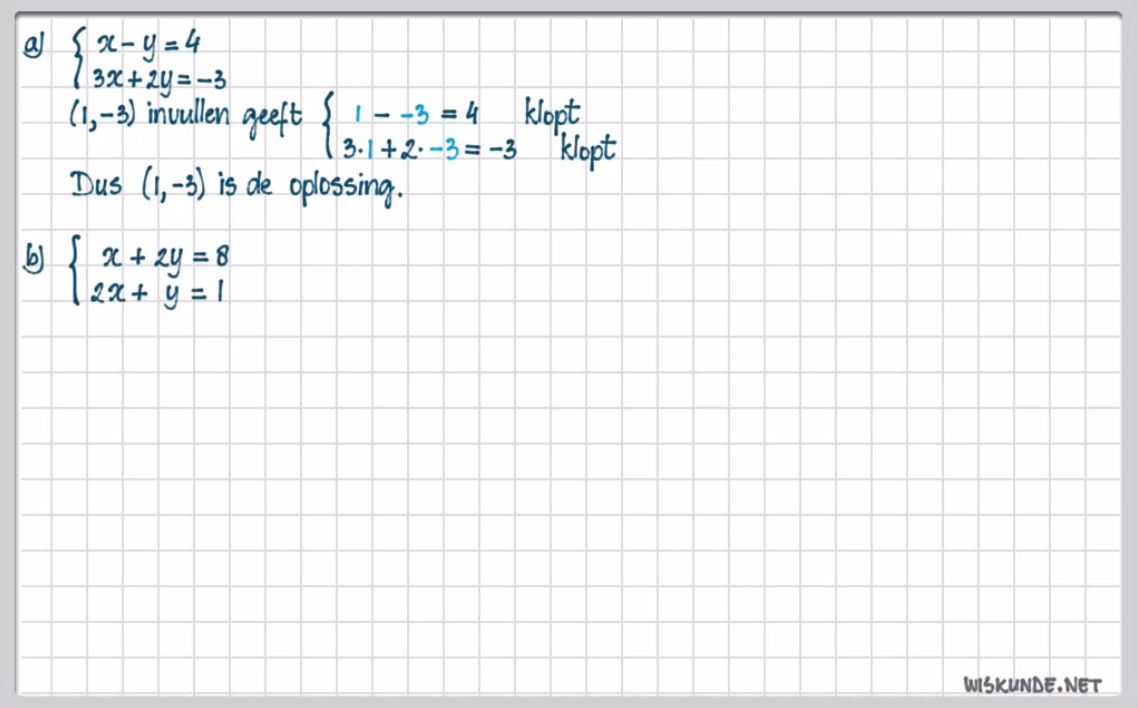 a) { x - y = 4
3x + 2y = -3
(1,-3) invullen geeft { 1 - -3 = 4 klopt
3·1 + 2·-3 = -3 klopt
Dus (1,-3) is de oplossing.
b) { x + 2y = 8
2x + y = 1
WISKUNDE.NET